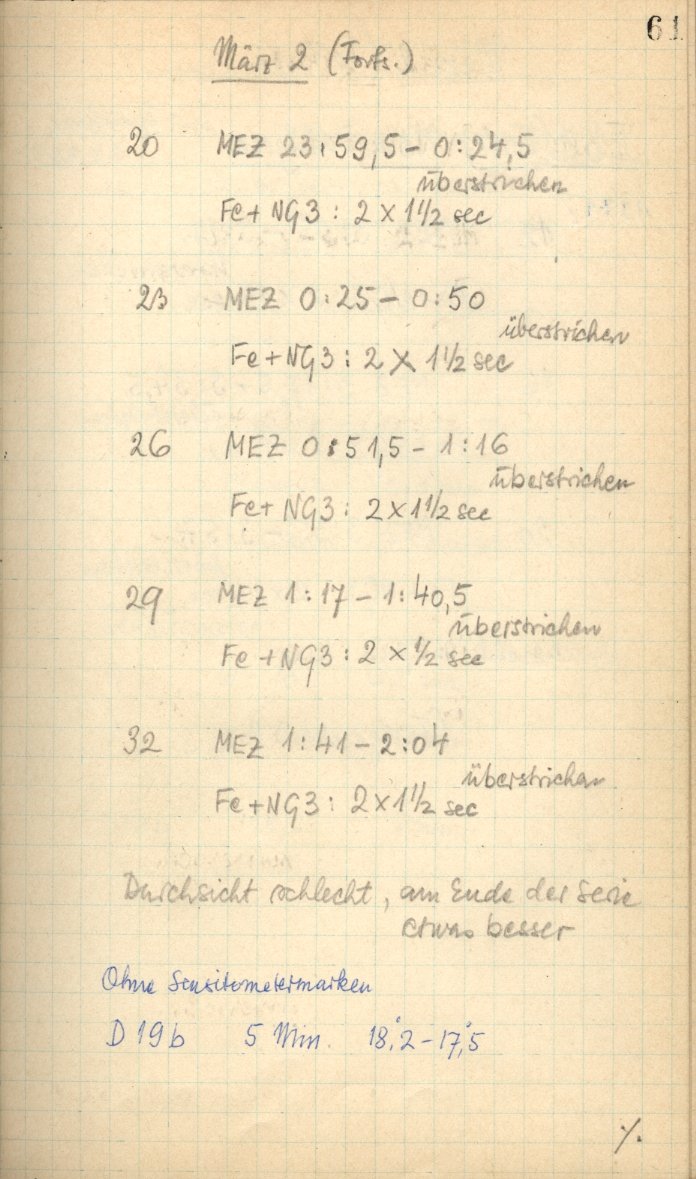 61
März 2 (Forts.)
20 MEZ 23:59,5 – 0:24,5
überstrichen
Fe + NG3 : 2 × 1 1/2 sec
23 MEZ 0:25 – 0:50
überstrichen
Fe + NG3 : 2 × 1 1/2 sec
26 MEZ 0:51,5 – 1:16
überstrichen
Fe + NG3 : 2 × 1 1/2 sec
29 MEZ 1:17 – 1:40,5
überstrichen
Fe + NG3 : 2 × 1/2 sec
32 MEZ 1:41 – 2:04
überstrichen
Fe + NG3 : 2 × 1 1/2 sec
Durchsicht schlecht, am Ende der Serie
etwas besser
Ohne Sensitometermarken
D 19b 5 Min. 18°,2 – 17°,5
·/.